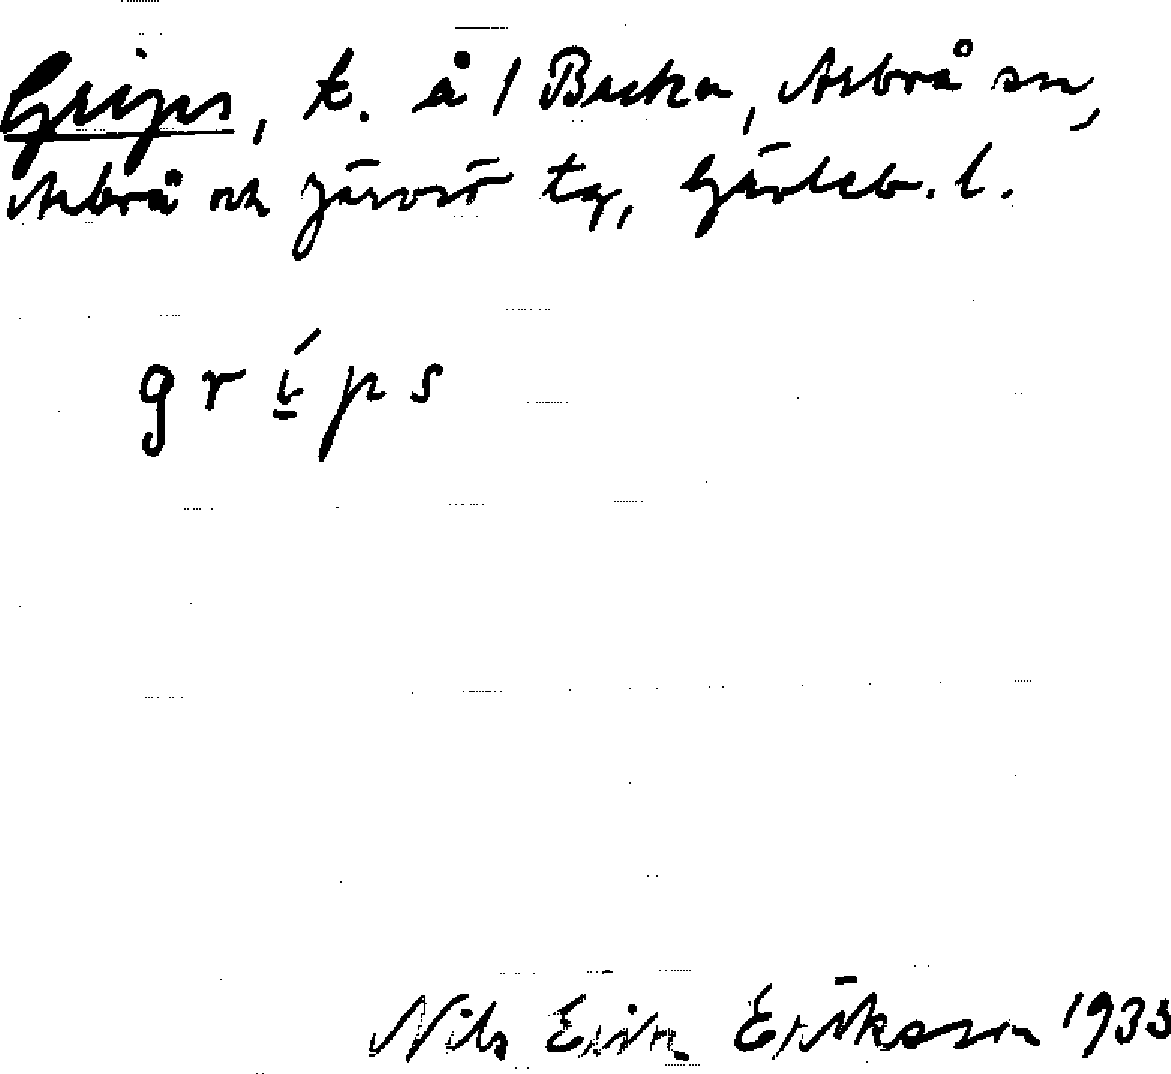 Grips, t. å / Backa, Arbrå sn,
Arbrå och Järvsö tg, Gävleb. l.
grips
Nils Erik Eriksson 1933